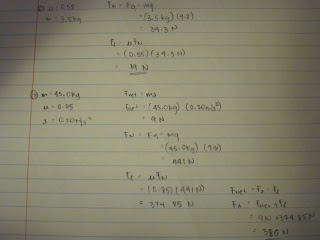 μ = 0.55
m = 3.5kg
FN = Fg = mg
= (3.5kg)(9.8)
= 34.3 N
Ff = μFN
= (0.55)(34.3N)
= 19 N
m = 45.0kg
μ = 0.85
a = 0.20m/s²
Fnet = ma
Fnet = (45.0kg)(0.20m/s²)
= 9N
FN = Fg = mg
= (45.0kg)(9.8)
= 441 N
Ff = μFN
= (0.85)(441N)
= 374.85 N
Fnet = Fa - Ff
Fa = Fnet + Ff
= 9N + 374.85N
= 380N